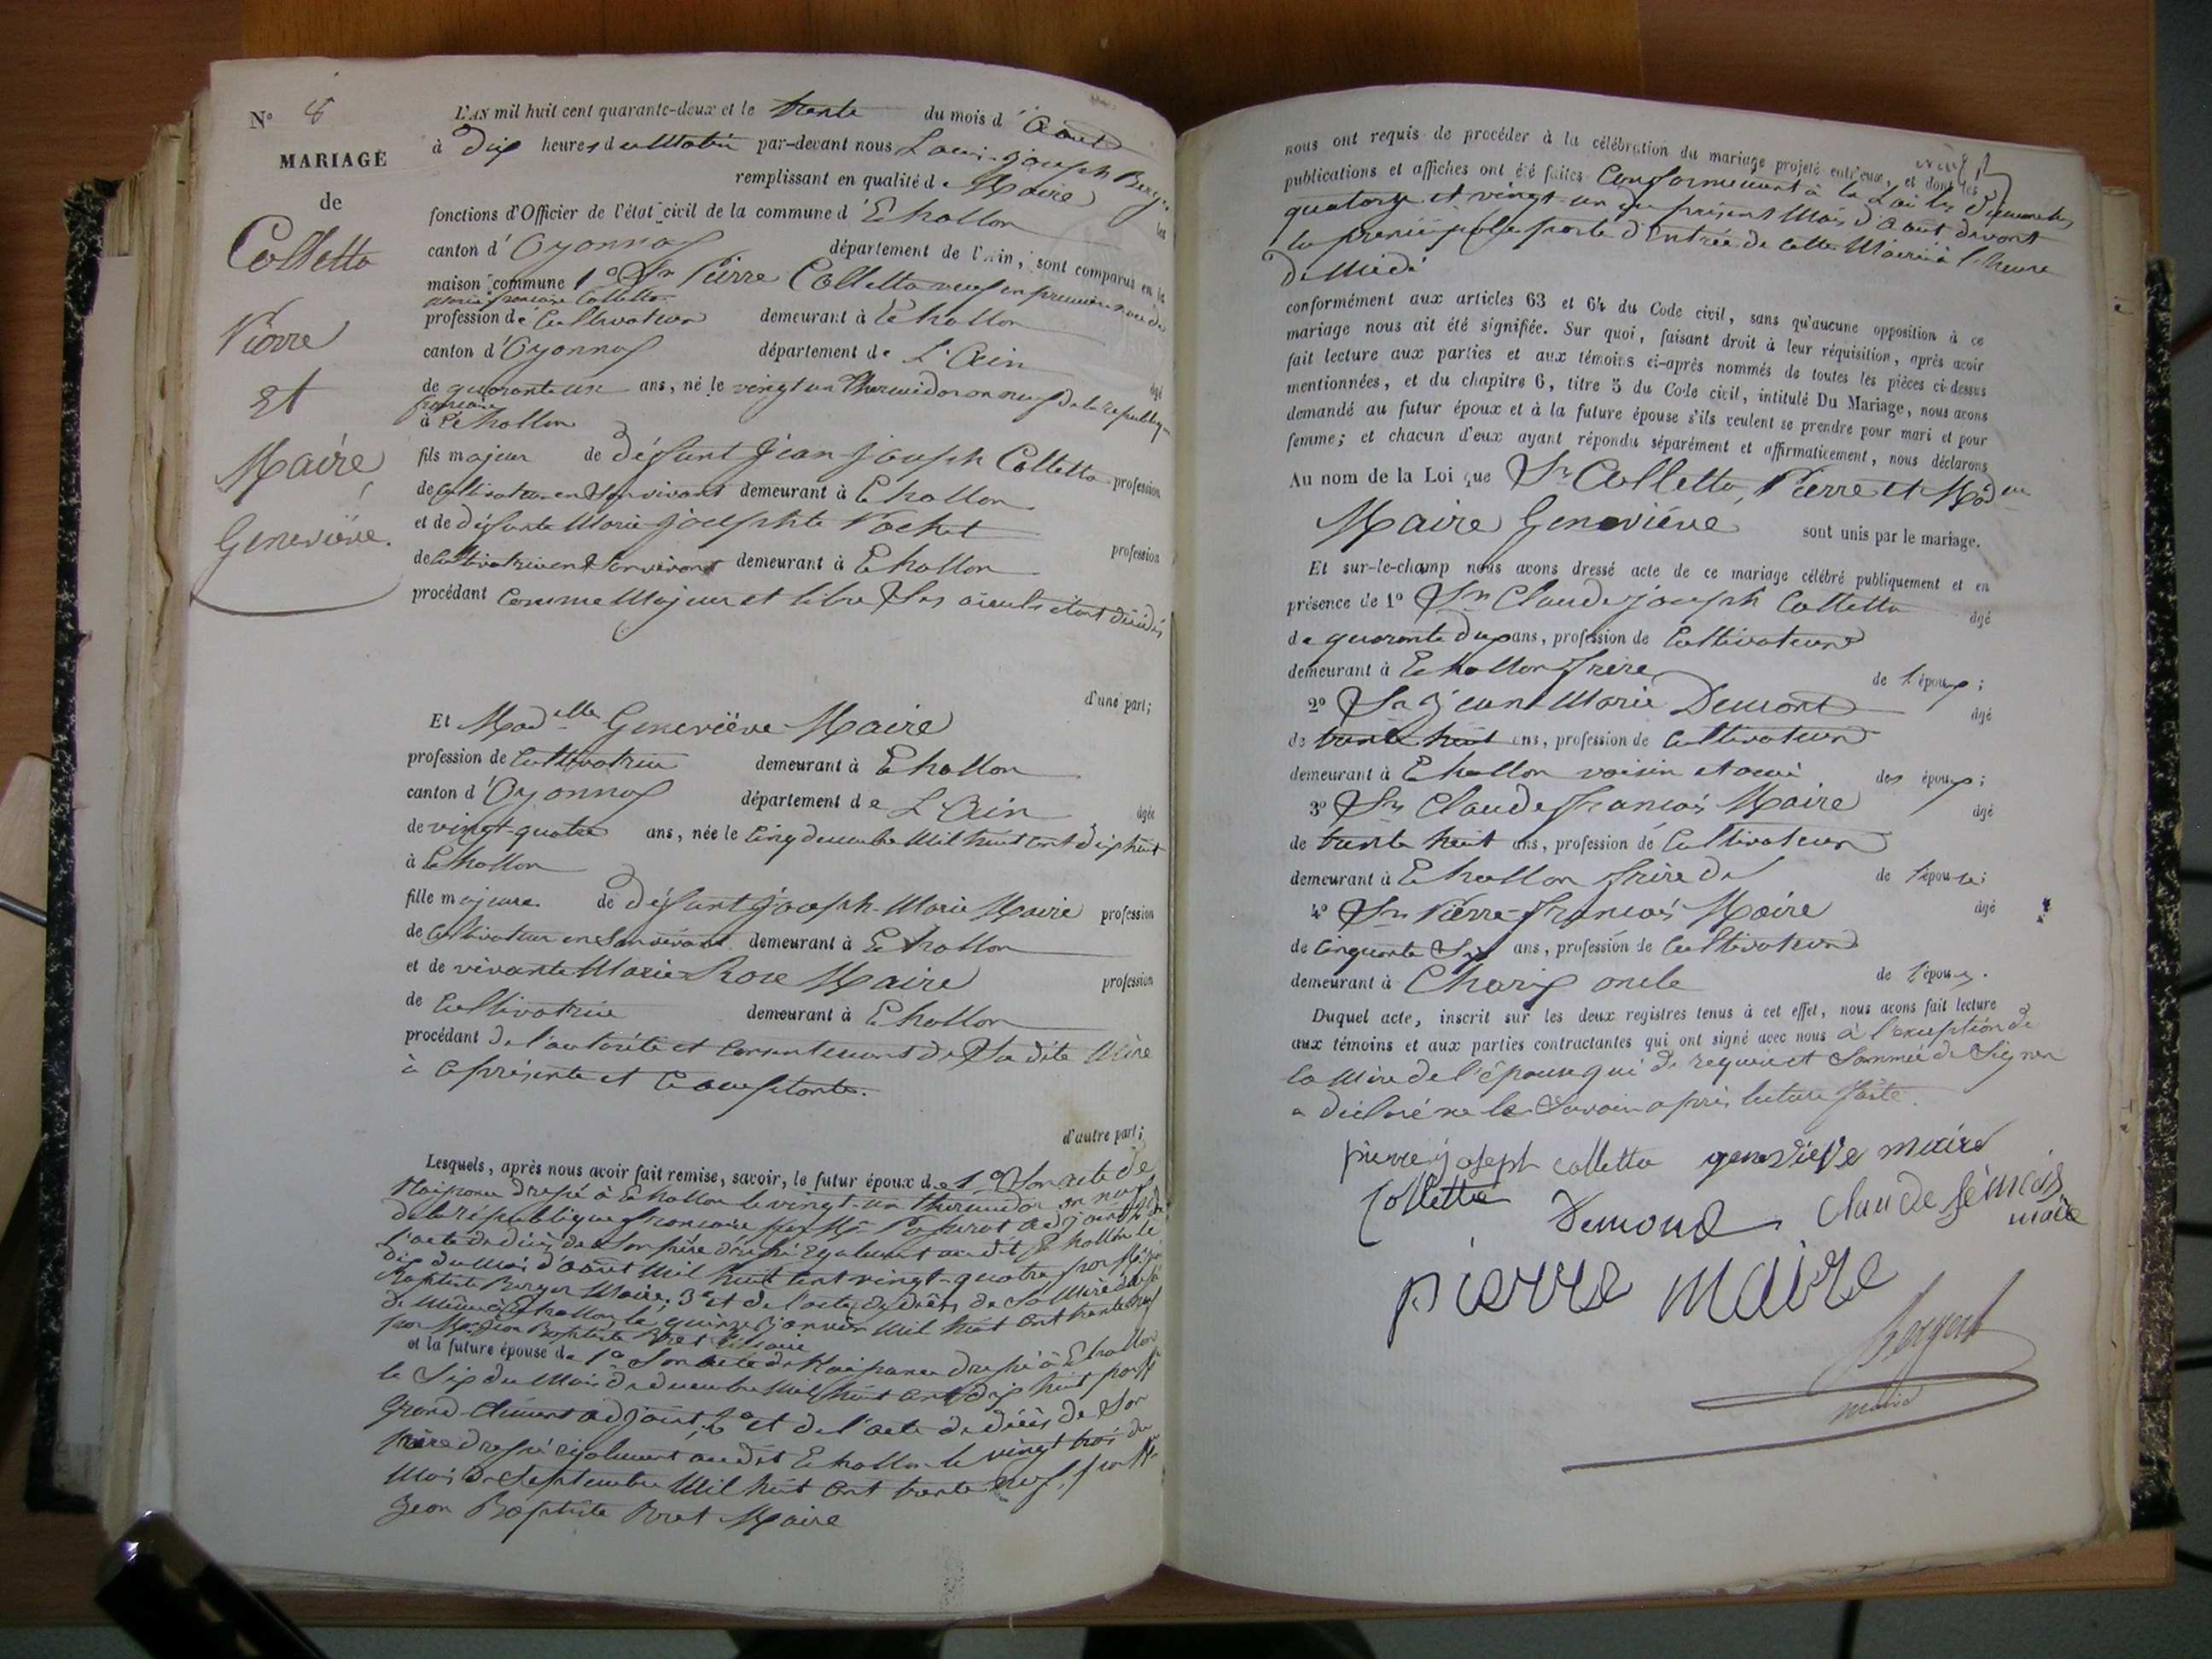 N° 8
MARIAGE
de
Colletta
Pierre
Et
Maire
Geneviève.
L'AN mil huit cent quarante-deux et le trente du mois d'Aout
à dix heures du Matin par-devant nous Louis-joseph
remplissant en qualité de Maire les
fonctions d'Officier de l'état civil de la commune d'Echallon
canton d'Oyonnax département de l'Ain, sont comparus en la
maison commune 1° Sr Pierre Colletta veuf en
Colletta
profession de Cultivateur demeurant à Echallon
canton d'Oyonnax département de L'Ain
âgé
de quarante un ans, né le vingt un Thermidor an neuf de la république
française
à Echallon
fils majeur de défunt Jean joseph Colletta profession
de Cultivateur en Son vivant demeurant à Echallon
et de défunte Marie josephte Pochet profession
de Cultivatrice en Son vivant demeurant à Echallon
procédant Comme Majeur et libre Ses aieuls étant décédés
d'une part;
Et Madelle Geneviève Maire
profession de Cultivatrice demeurant à Echallon
canton d'Oyonnax département de L'Ain âgée
de vingt-quatre ans, née le Cinq decembre Mil huit cent dix huit
à Echallon
fille majeure de défunt Joseph-Marie Maire profession
de Cultivateur en Son vivant demeurant à Echallon
et de vivante Marie Rose Maire profession
de Cultivatrice demeurant à Echallon
procédant de l'autorité et Consentement de Sa dite Mère
à Ce présente et Consentante.
d'autre part;
Lesquels, après nous avoir fait remise, savoir, le futur époux de 1° Son acte de
Naissance dressé à Echallon le vingt-un thermidor an neuf
de la république française par Mr adjoint
l'acte de décès de Son père dressé également au dit Echallon le
dix du Mois d'aout Mil huit Cent vingt-quatre par Mr
Baptiste Maire; 3° et de l'acte de décès de Sa Mère
de Même à Echallon le quinze janvier Mil huit Cent trente
par Mr Jean Baptiste Bret Maire
et la future épouse de 1° Son acte de Naissance dressé à Echallon
le Six du Mois de decembre Mil huit Cent dix huit par Mr
Grand-Clément adjoint, 2° et de l'acte de décès de Son
père dressé également au dit Echallon le vingt trois du
Mois de Septembre Mil huit Cent trente neuf, par Mr
Jean Baptiste Bret Maire
nous ont requis de procéder à la célébration du mariage projeté entr'eux, et dont les
publications et affiches ont été faites Conformément à la Loi les dimanches
quatorze et vingt-un du présent Mois d'Aout devant
la principale porte d'Entrée de Cette Mairie à l'heure
de Midi
conformément aux articles 63 et 64 du Code civil, sans qu'aucune opposition à ce
mariage nous ait été signifiée. Sur quoi, faisant droit à leur réquisition, après avoir
fait lecture aux parties et aux témoins ci-après nommés de toutes les pièces ci-dessus
mentionnées, et du chapitre 6, titre 5 du Code civil, intitulé Du Mariage, nous avons
demandé au futur époux et à la future épouse s'ils veulent se prendre pour mari et pour
femme; et chacun d'eux ayant répondu séparément et affirmativement, nous déclarons
Au nom de la Loi que Sr Colletta, Pierre et
Maire Geneviève sont unis par le mariage.
Et sur-le-champ nous avons dressé acte de ce mariage célébré publiquement et en
présence de 1° Sr Claude joseph Colletta âgé
de quarante ans, profession de Cultivateur
demeurant à Echallon frère de l'époux;
2° Sr Jean Marie Demont âgé
de trente huit ans, profession de Cultivateur
demeurant à Echallon voisin et ami des époux;
3° Sr Claude françois Maire âgé
de trente huit ans, profession de Cultivateur
demeurant à Echallon frère de de l'épouse;
4° Sr Pierre-françois Maire âgé
de Cinquante Six ans, profession de Cultivateur
demeurant à Charix oncle de l'épouse.
Duquel acte, inscrit sur les deux registres tenus à cet effet, nous avons fait lecture
aux témoins et aux parties contractantes qui ont signé avec nous à l'exception de
la Mère de l'épouse qui de requise et Sommée de Signer
a déclaré ne le Savoir après lecture faite.
pierre joseph colletta genevieve maire
Colletta Demond Claude
maire
pierre maire
maire